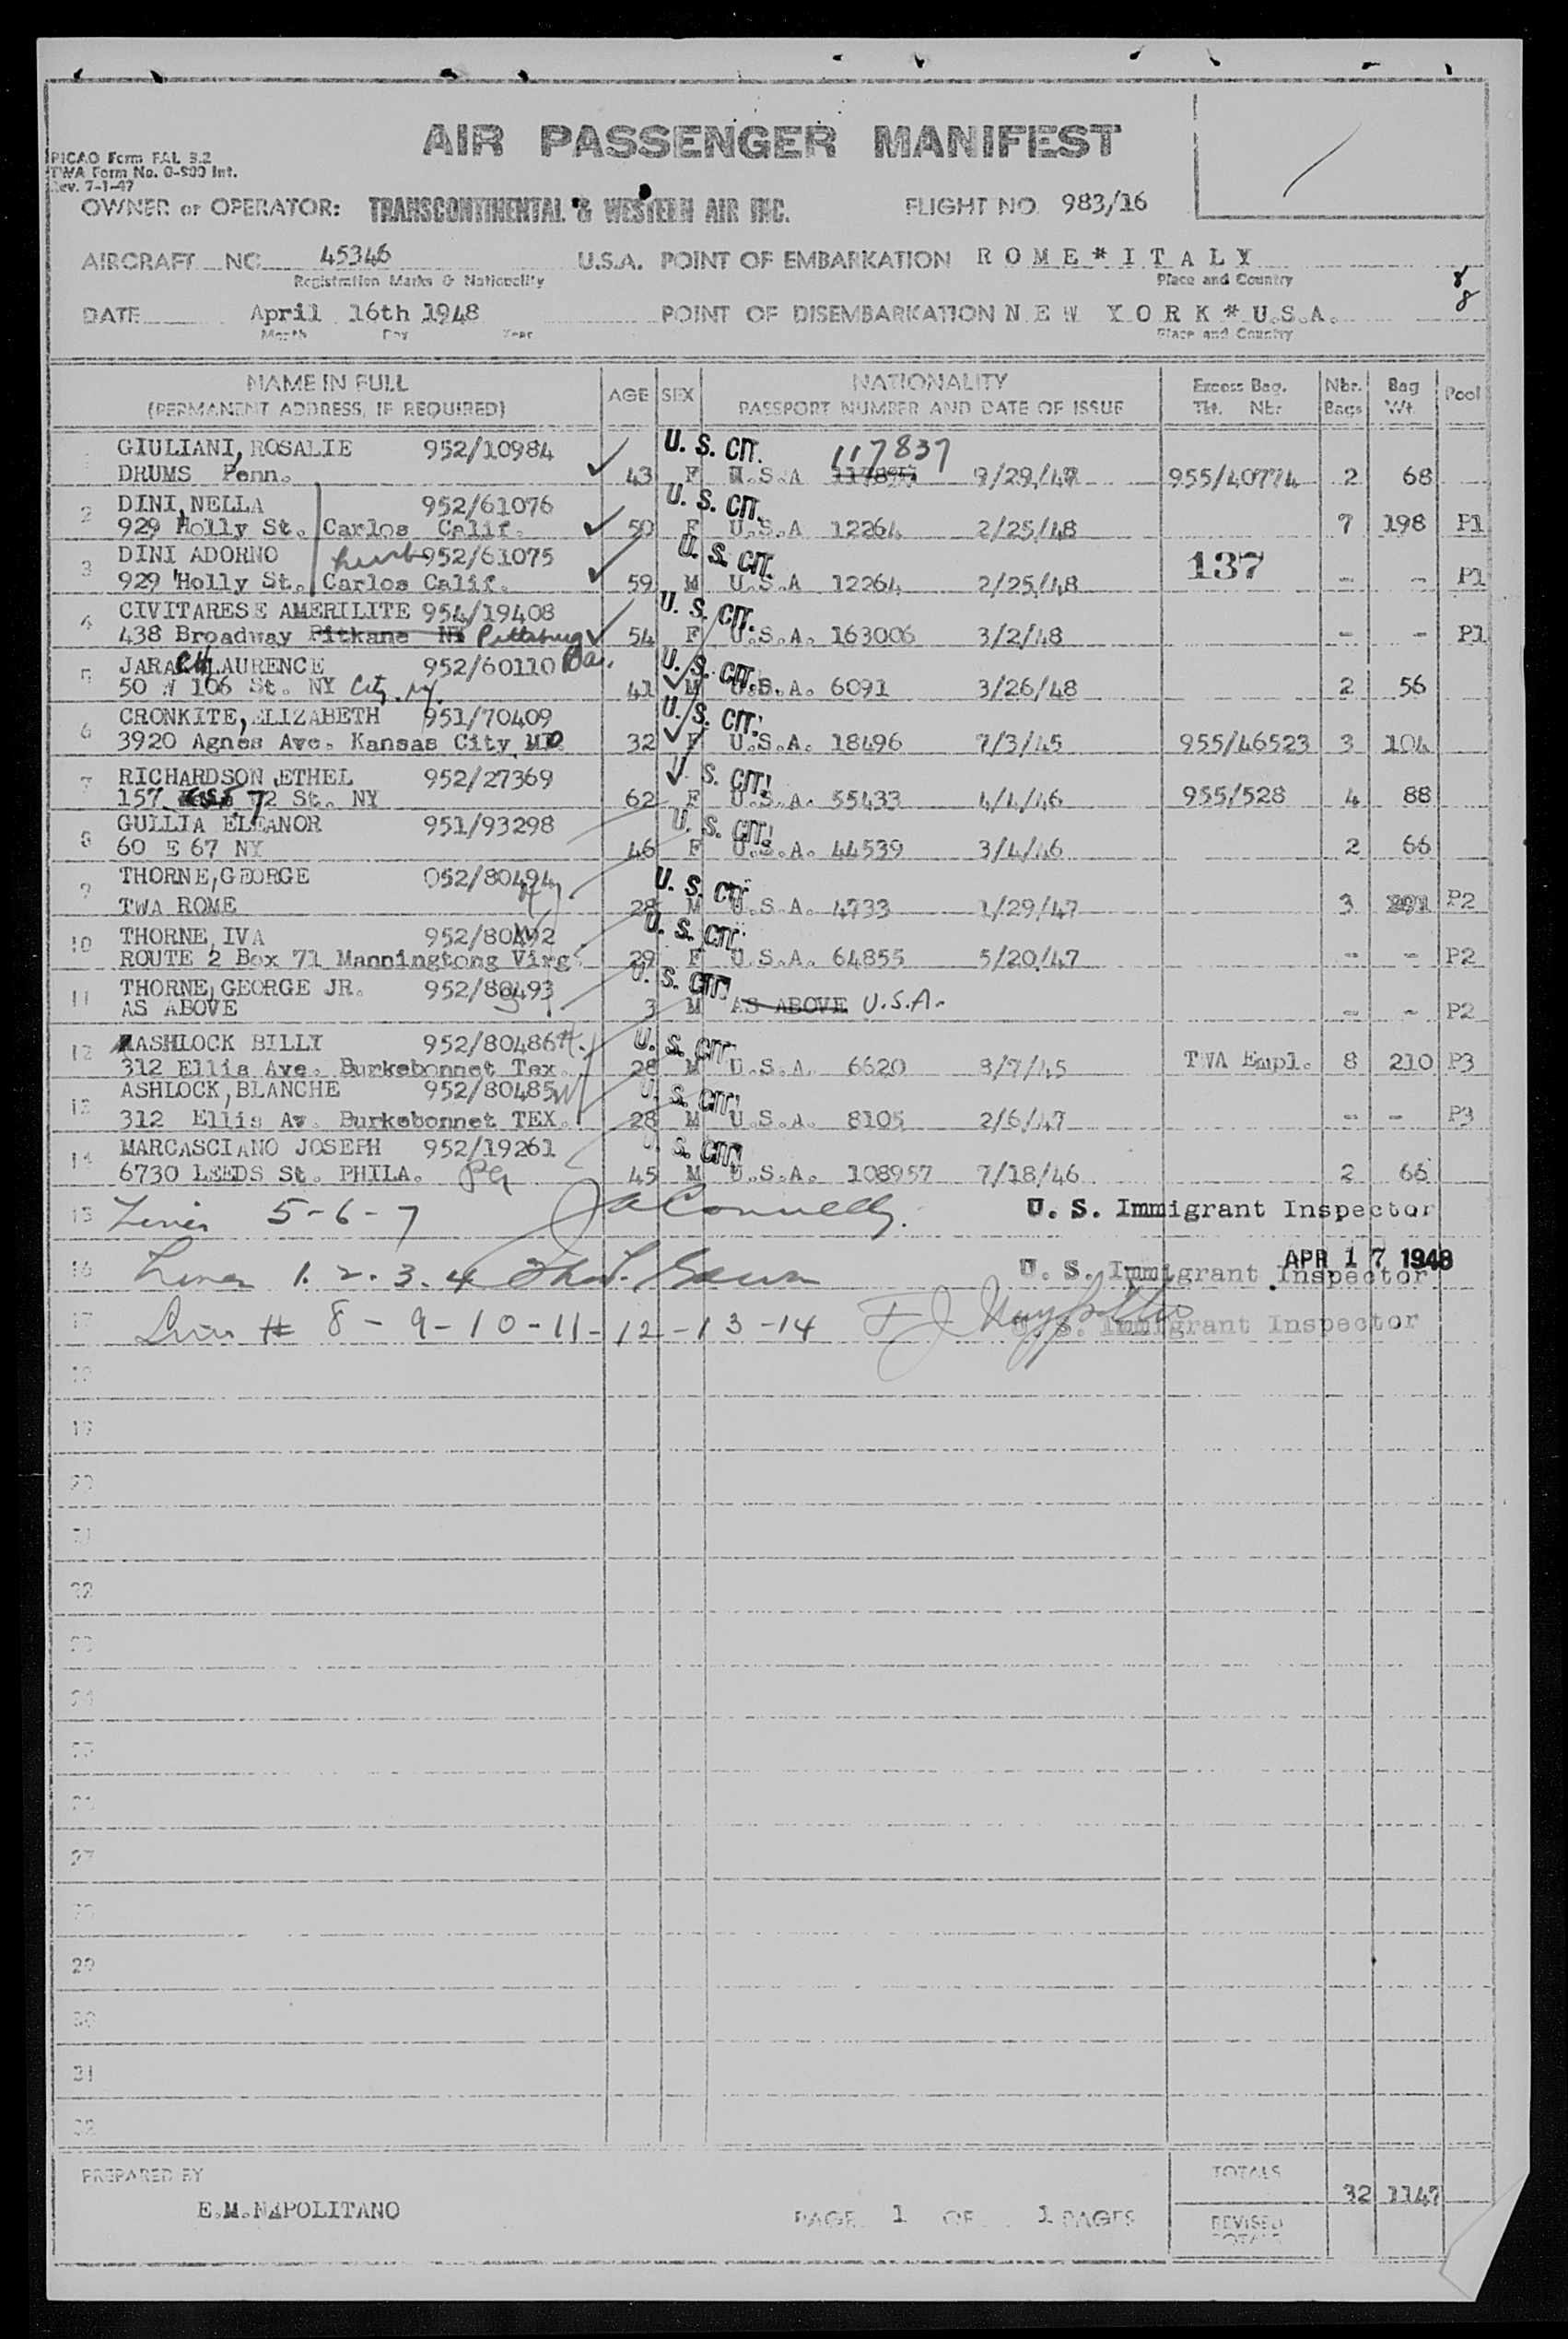 AIR PASSENGER MANIFEST
PICAO Form FAL 3.2
TWA Form No. 0-800 Int.
Rev. 7-1-47
OWNER or OPERATOR: TRANSCONTINENTAL & WESTERN AIR INC. FLIGHT NO. 983/16
AIRCRAFT NO. 45346 U.S.A. POINT OF EMBARKATION ROME*ITALY
Registration Marks & Nationality Place and Country
8
8
DATE April 16th 1948 POINT OF DISEMBARKATION NEW YORK*U.S.A.
Month Day Year Place and Country
NAME IN FULL AGE SEX NATIONALITY Excess Bag. Nbr. Bag Pool
(PERMANENT ADDRESS, IF REQUIRED) PASSPORT NUMBER AND DATE OF ISSUE Tkt. Nbr. Bags Wt.
1 GIULIANI, ROSALIE 952/10984 U. S. CIT. 117837
DRUMS Penn. 43 F U.S.A 9/29/47 955/40774 2 68
2 DINI, NELLA 952/61076 U. S. CIT.
929 Holly St. Carlos Calif. 50 F U.S.A 12264 2/25/48 7 198 P1
3 DINI ADORNO 952/61075 U. S. CIT. 137
929 Holly St. Carlos Calif. 59 M U.S.A 12264 2/25/48 - - P1
4 CIVITARESE AMERILITE 954/19408 U. S. CIT.
438 Broadway Pitkane Pittsburg 54 F U.S.A. 163006 3/2/48 - - P1
5 JARACH LAURENCE 952/60110 U. S. CIT.
50 W 106 St. NY City. NY. 41 M U.S.A. 6091 3/26/48 2 56
6 CRONKITE, ELIZABETH 951/70409 U. S. CIT.
3920 Agnes Ave. Kansas City MO. 32 F U.S.A. 18496 7/3/45 955/46523 3 104
7 RICHARDSON ETHEL 952/27369 U. S. CIT.
157 72 St. NY 62 F U.S.A. 55433 4/4/46 955/528 4 88
8 GULLIA ELEANOR 951/93298 U. S. CIT.
60 E 67 NY 46 F U.S.A. 44539 3/4/46 2 66
9 THORNE, GEORGE 052/80494 U. S. CIT.
TWA ROME 28 M U.S.A. 4733 1/29/47 3 P2
10 THORNE, IVA 952/80492 U. S. CIT.
ROUTE 2 Box 71 Manningtong Virg. 29 F U.S.A. 64855 5/20/47 - - P2
11 THORNE, GEORGE JR. 952/80493 U. S. CIT.
AS ABOVE 3 M AS ABOVE U.S.A. - - P2
12 ASHLOCK BILLY 952/80486 U. S. CIT.
312 Ellis Ave. Burkebonnet Tex. 28 M U.S.A. 6620 8/7/45 TWA Empl. 8 210 P3
13 ASHLOCK, BLANCHE 952/80485 U. S. CIT.
312 Ellis Av. Burkebonnet TEX. 28 M U.S.A. 8105 2/6/47 - - P3
14 MARCASCIANO JOSEPH 952/19261 U. S. CIT.
6730 LEEDS St. PHILA. Pa 45 M U.S.A. 108957 7/18/46 2 66
15 Lines 5-6-7 JAConnelly. U. S. Immigrant Inspector
APR 17 1948
16 Lines 1. 2. 3. 4 U. S. Immigrant Inspector
17 Lines # 8-9-10-11-12-13-14 U. S. Immigrant Inspector
18
19
20
21
22
23
24
25
26
27
28
29
30
31
32
PREPARED BY TOTALS 32 1147
E.M.NAPOLITANO PAGE 1 OF 1 PAGES REVISED
TOTALS